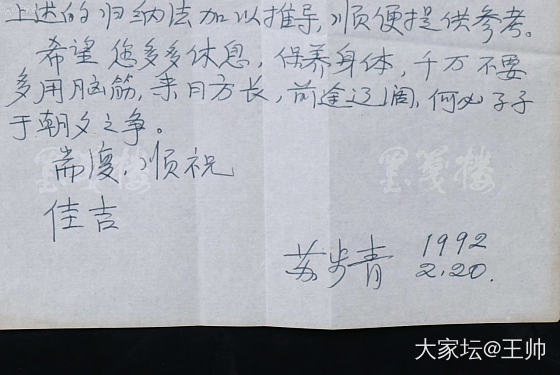 上述的归纳法加以推导,顺便提供参考。
希望您多多休息,保养身体,千万不要
多用脑筋,来日方长,前途辽阔,何必孑孑
于朝夕之争。
耑复,顺祝
佳吉
苏步青 1992
2.20.
墨笺楼 墨笺楼
大家坛@王帅